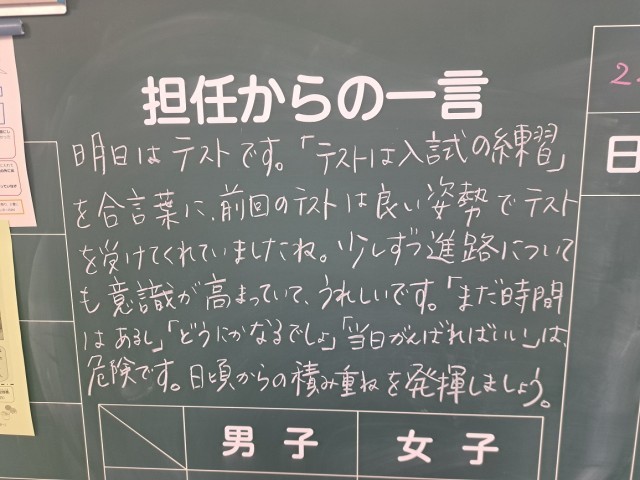 担任からの一言
明日はテストです。「テストは入試の練習」
を合言葉に、前回のテストは良い姿勢でテスト
を受けてくれていましたね。少しずつ進路について
も意識が高まっていて、うれしいです。「まだ時間
はあるし」「どうにかなるでしょ」「当日がんばればいい」は、
危険です。日頃からの積み重ねを発揮しましょう。
男子 女子
2
日